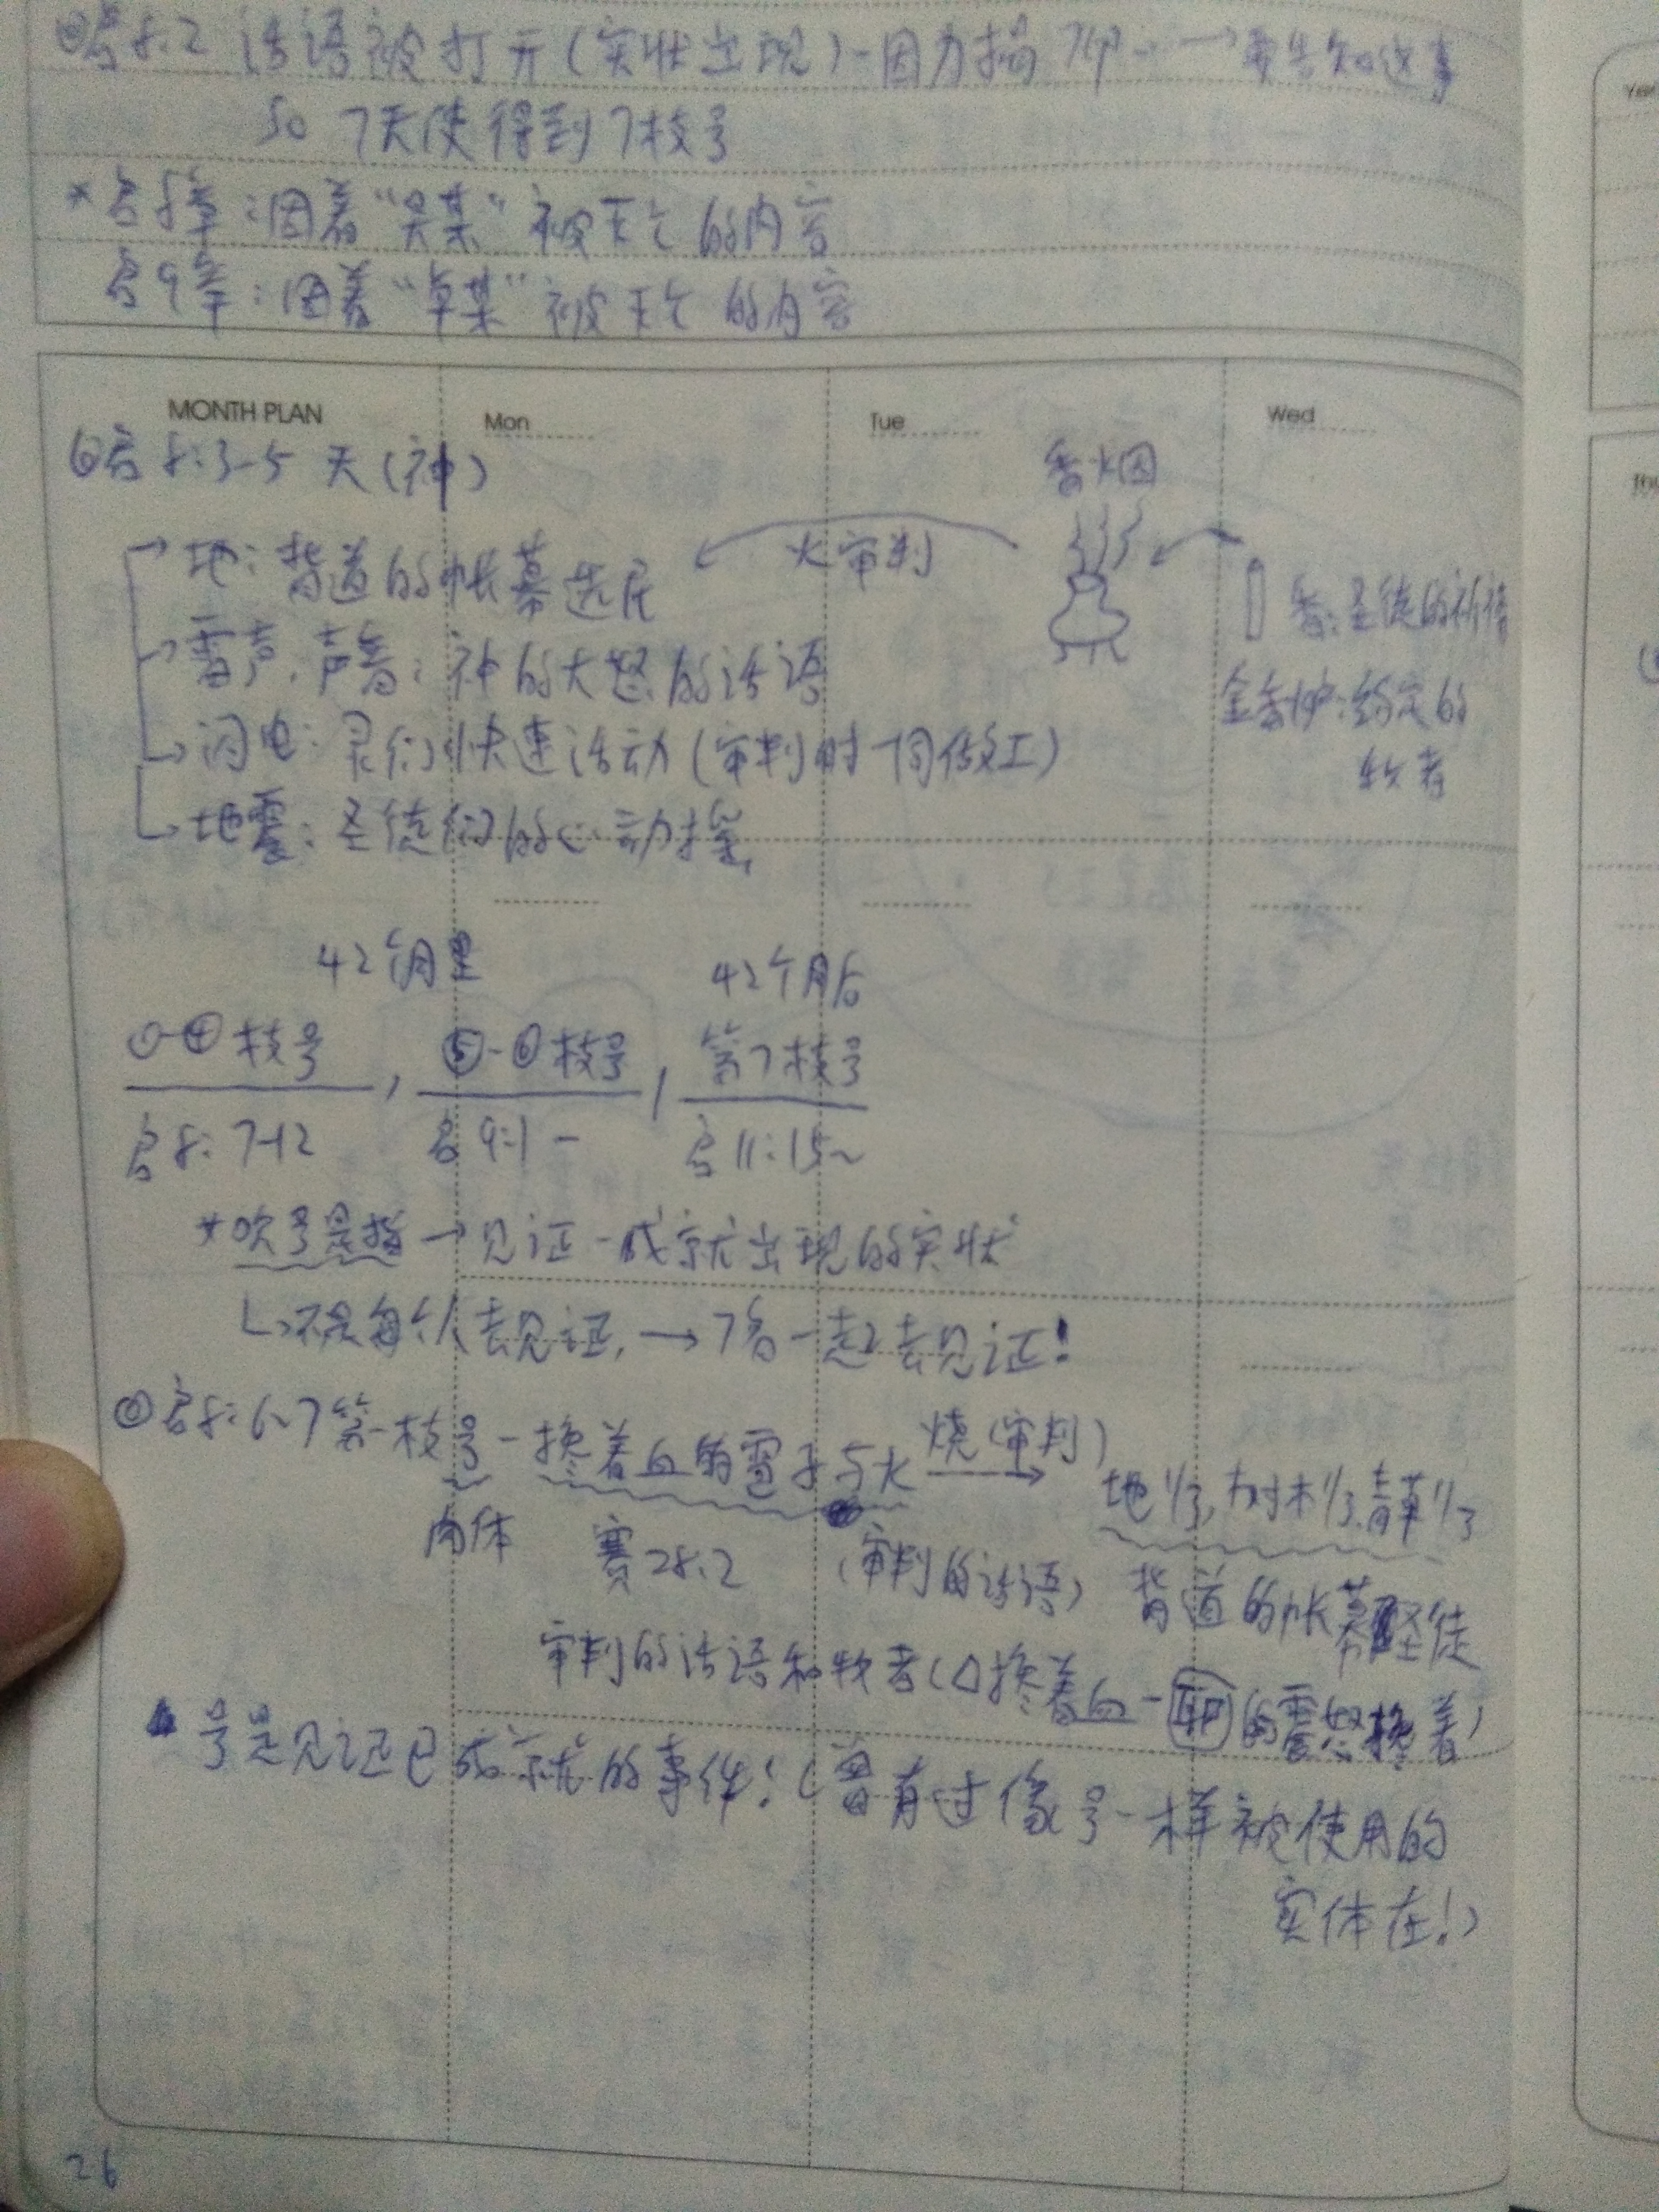 启8:2 话语被打开(实状出现)-因为揭7印 → 要告知这事
So 7天使得到7枝号
*启8章:因着“吴某”被灭亡的内容
启9章:因着“卓某”被灭亡的内容
MONTH PLAN Mon Tue Wed
⑥启8:3-5 天(神)
香烟
→地:背道的帐幕选民
火审判
香:圣徒的祈祷
→雷声,声音:神的大怒的话语
金香炉:约定的
牧者
→闪电:灵们快速活动(审判时一同做工)
→地震:圣徒们的心动摇
42个月里 42个月后
①-④枝号, ⑤-⑥枝号, 第7枝号
启8:7-12 启9:1- 启11:15~
*吹号是指→见证-成就出现的实状
↳不是每个人去见证,→7名一起去见证!
启8:6-7第一枝号-搀着血的雹子与火 烧(审判)→ 地1/3,树木1/3,青草1/3
肉体 赛28:2 (审判的话语) 背道的帐幕圣徒
审判的话语和牧者(△搀着血-的震怒搀着)
号是见证已成就的事件!(曾有过像号一样被使用的
实体在!)
26